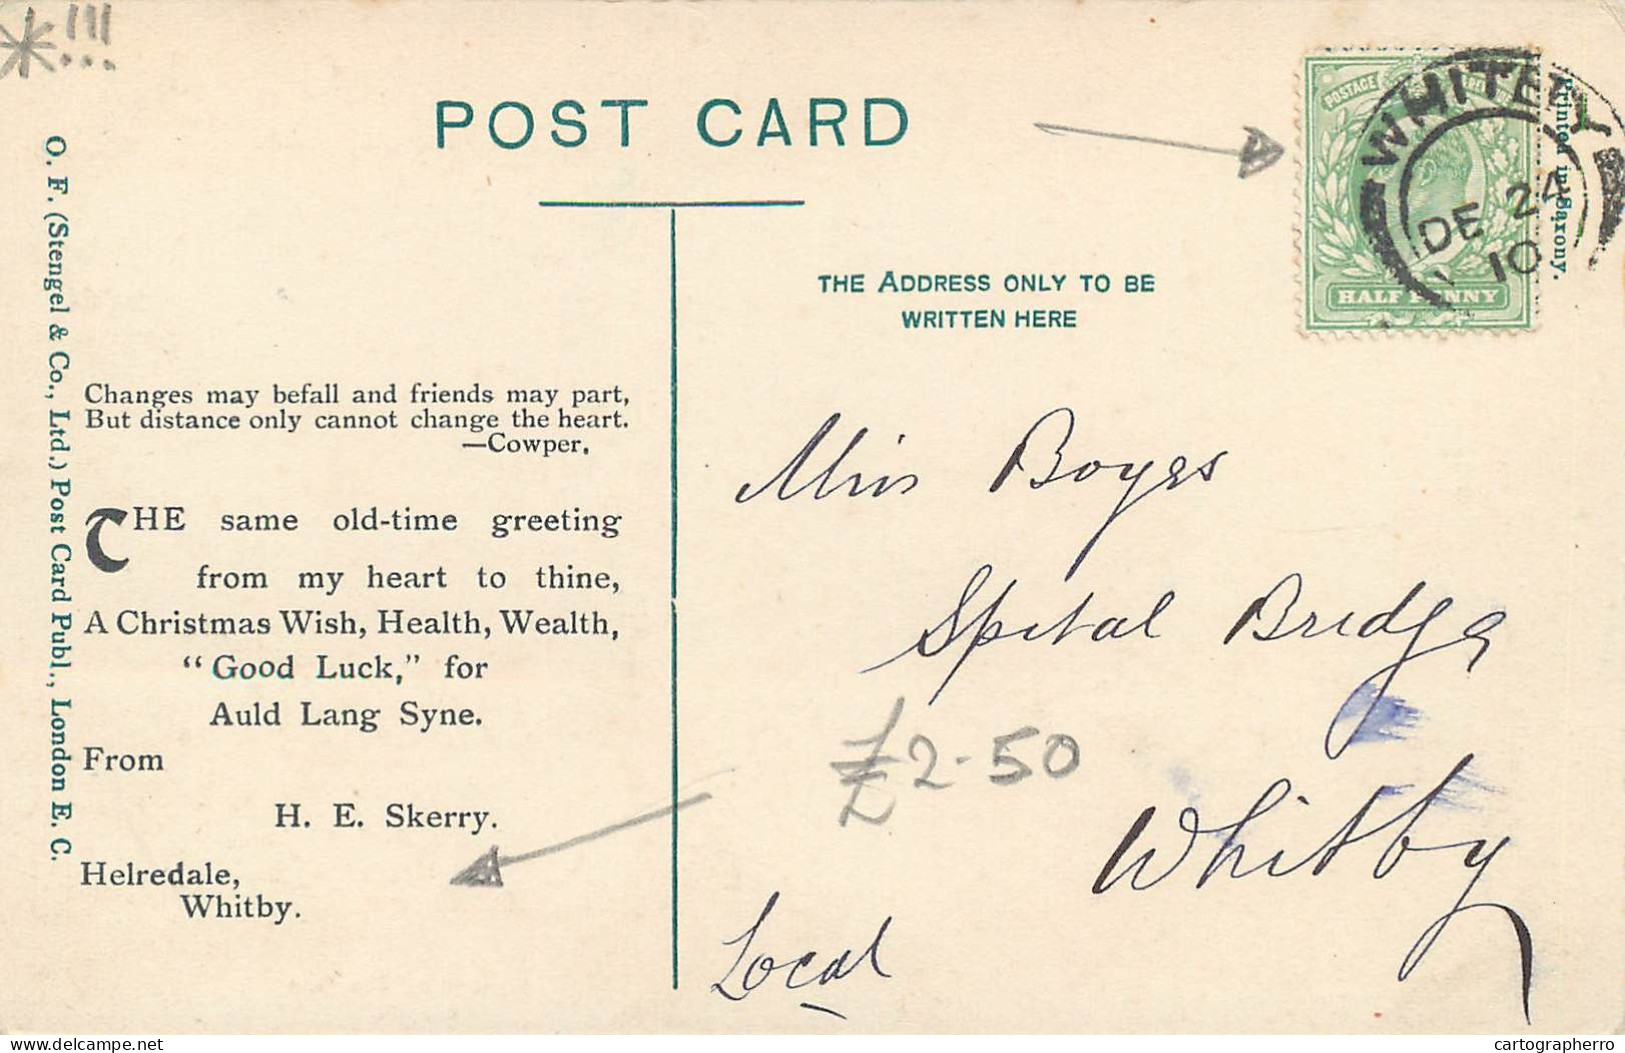 *!!!
POST CARD
WHITBY
DE 24
10
HALF PENNY
POSTAGE
Printed in Saxony.
O. F. (Stengel & Co., Ltd.) Post Card Publ., London E. C.
THE ADDRESS ONLY TO BE
WRITTEN HERE
Changes may befall and friends may part,
But distance only cannot change the heart.
—Cowper.
THE same old-time greeting
from my heart to thine,
A Christmas Wish, Health, Wealth,
"Good Luck," for
Auld Lang Syne.
From
H. E. Skerry.
Helredale,
Whitby.
Miss Boyes
Spital Bridge
£2-50
Whitby
Local
delcampe.net
cartographerro